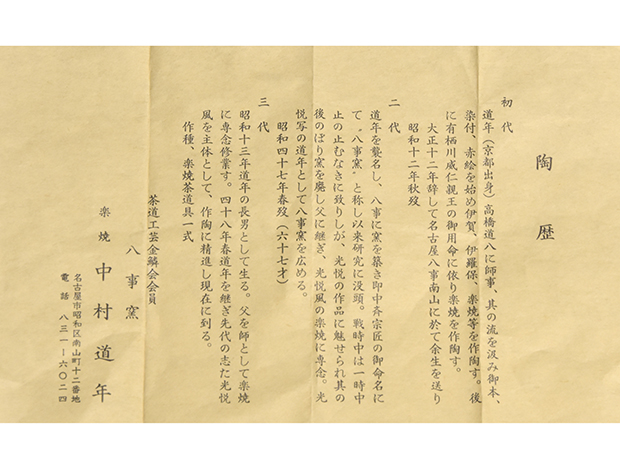 陶歴
初代
道年（京都出身）高橋道八に師事、其の流を汲み御本、
染付、赤絵を始め伊賀、伊羅保、楽焼等を作陶す。後
に有栖川威仁親王の御用命に依り楽焼を作陶す。
大正十二年辞して名古屋八事南山に於て余生を送り
昭和十二年秋歿
二代
道年を襲名し、八事に窯を築き即中斉宗匠の御命名に
て〝八事窯〟と称し以来研究に没頭。戦時中は一時中
止の止むなきに致りしが、光悦の作品に魅せられ其の
後のぼり窯を廃し父に継ぎ、光悦風の楽焼に専念。光
悦写の道年として八事窯を広める。
昭和四十七年春歿（六十七才）
三代
昭和十三年道年の長男として生る。父を師として楽焼
に専念修業す。四十八年春道年を継ぎ先代の志た光悦
風を主体として、作陶に精進し現在に到る。
作種、楽焼茶道具一式
茶道工芸金鱗会会員
八事窯
楽焼 中村道年
名古屋市昭和区南山町十二番地
電話 八三一－六〇二四